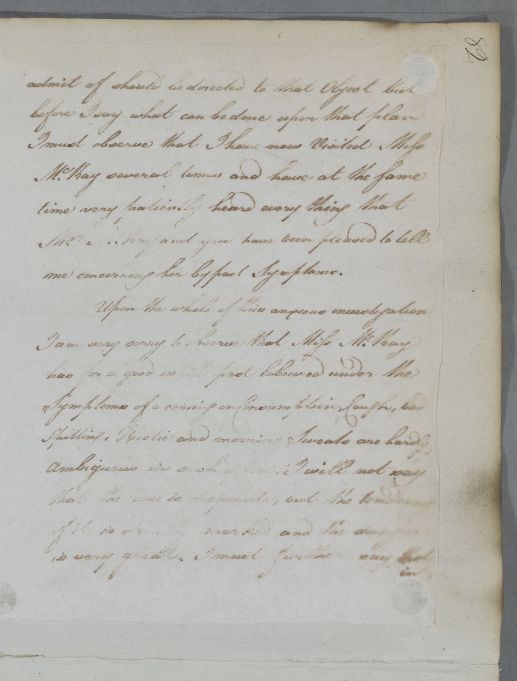 82
admit of should be directed to that Object but
before I say what can be done upon that plan
I must observe that I have now Visited Miss
McKay several times and have at the same
time very patiently heard every thing that
and you have been pleased to tell
me concerning her bypast Symptoms.
Upon the whole of this anxious investigation
I am very sorry to observe that Miss McKay
has for a good while past laboured under the
Symptoms of a coming consumption Cough,
Spitting, Hectic and morning Sweats are hardly
ambiguous in such a I will not say
that the case is desperate, but the tendency
of it is marked and the danger
is very great. I must further say that
in